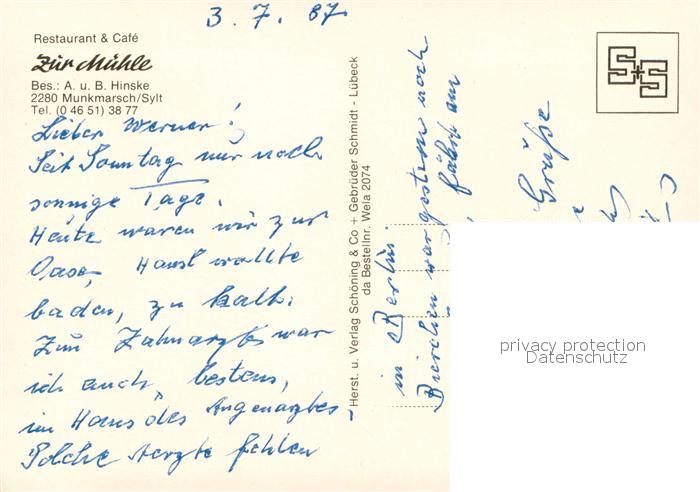 3. 7. 87
Restaurant & Café
Zur Mühle
Bes.: A. u. B. Hinske
2280 Munkmarsch/Sylt
Tel. (0 46 51) 38 77
Lieber Werner!
Seit Sonntag nur noch
sonnige Tage.
Heute waren wir zur
Oase, Hansl wollte
baden, zu kalt.
Zum Zahnarzt war
ich auch, bestens,
im Haus des Augenarztes
Solche Aerzte fehlen
Herst. u. Verlag Schöning & Co + Gebrüder Schmidt - Lübeck
da Bestellnr. Wela 2074
in Berlin.
war gestern noch
fährt am
Grüße
S+S
privacy protection
Datenschutz